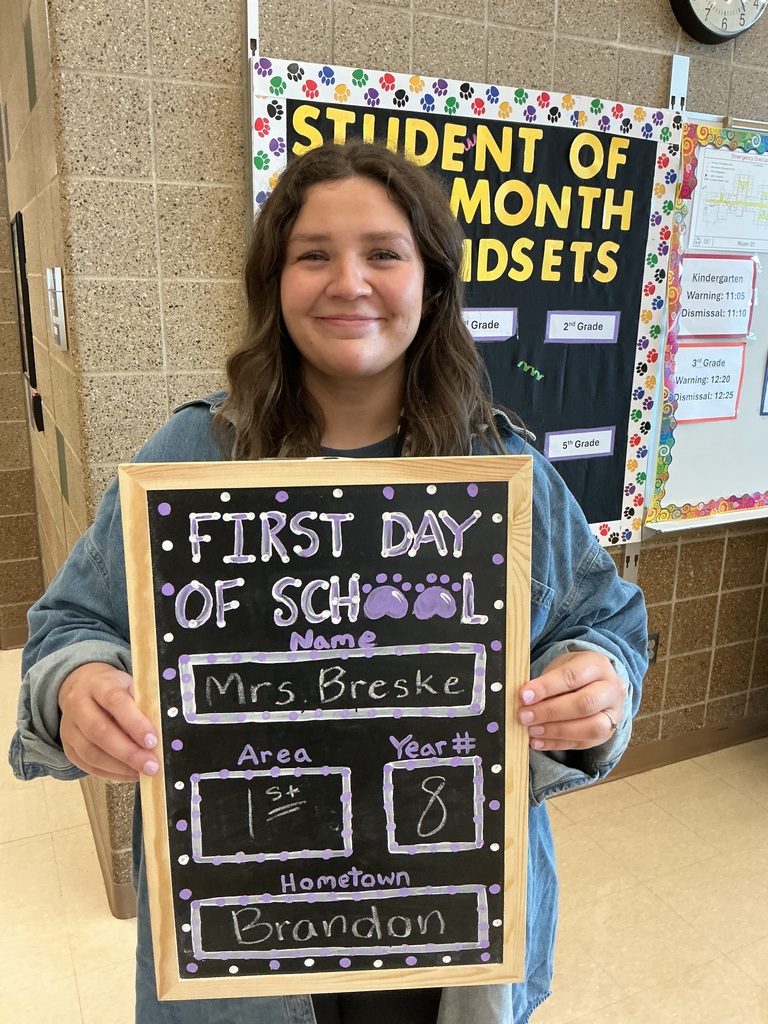 STUDENT OF
MONTH
NDSETS
st Grade
2nd Grade
5th Grade
Emergency
Room 101
Kindergarten
Warning: 11:05
Dismissal: 11:10
3rd Grade
Warning: 12:20
Dismissal: 12:25
7 6 5
FIRST DAY
OF SCHOOL
Name
Mrs. Breske
Area
Year #
1st
8
Hometown
Brandon